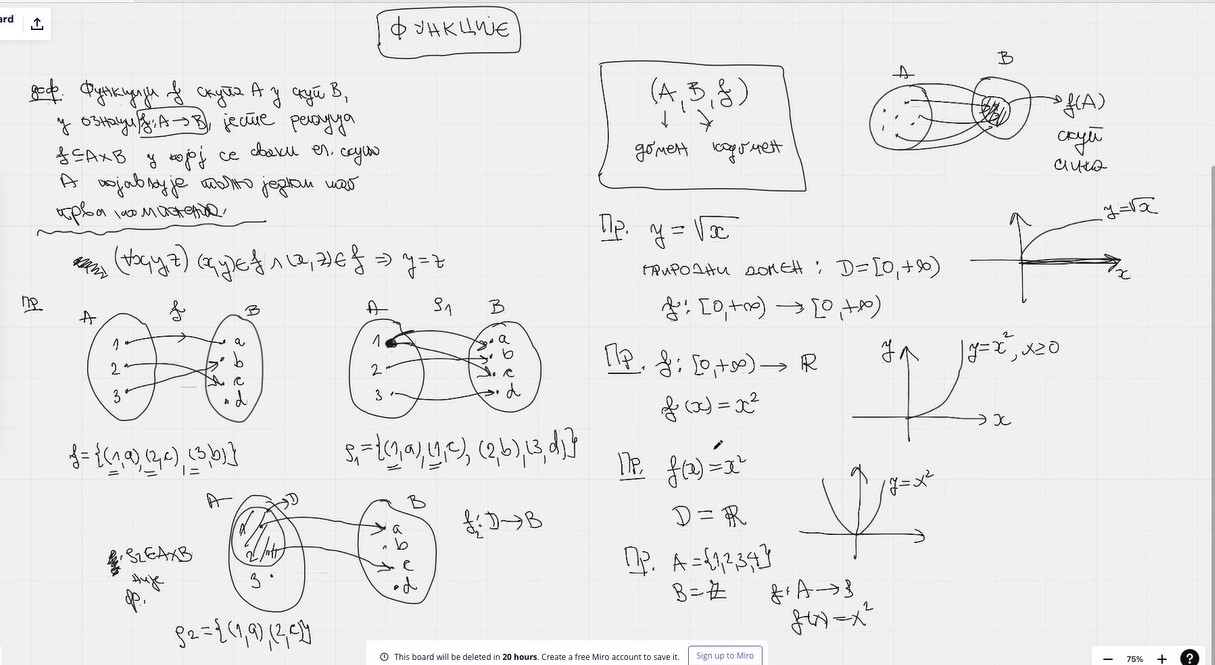 ard
ФУНКЦИЈЕ
деф. Функција f скупа A у скуп B,
у ознаци f:A→B, јесте релација
f⊆A×B у којој се сваки ел. скупа
A појављује тачно једном као
прва компонента.
(∀x,y,z) (x,y)∈f ∧ (x,z)∈f ⇒ y=z
Пр
A f B
1 a
2 b
3 c
d
f={(1,a),(2,c),(3,b)}
A ρ1 B
1 a
2 b
3 c
d
ρ1={(1,a),(1,c),(2,b),(3,d)}
A D B
1 a
2 b
3 c
d
f2:D→B
ρ2∈A×B
није
ф.
ρ2={(1,a),(2,c)}
(A,B,f)
домен кодомен
A B
f(A)
скуп
слика
Пр. y=√x
ПРИРОДНИ ДОМЕН: D=[0,+∞)
f:[0,+∞)→[0,+∞)
y=√x
x
Пр. f:[0,+∞)→ℝ
f(x)=x²
y y=x², x≥0
x
Пр. f(x)=x²
D=ℝ
y=x²
Пр. A={1,2,3,4}
B=ℤ f:A→B
f(x)=x²
This board will be deleted in 20 hours. Create a free Miro account to save it. Sign up to Miro
− 75% + ?